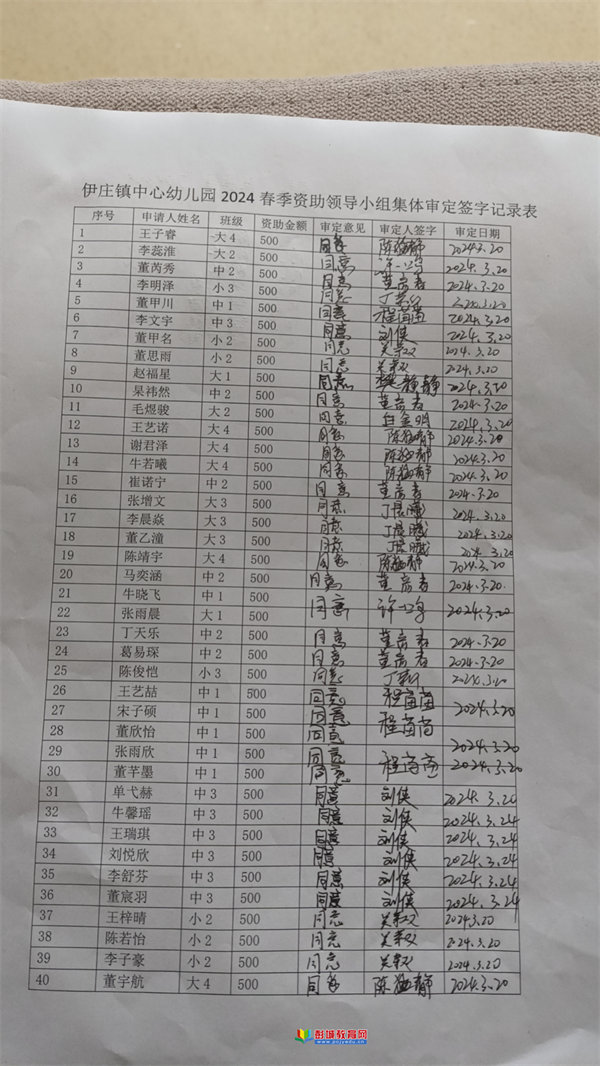 伊庄镇中心幼儿园 2024 春季资助领导小组集体审定签字记录表
序号 申请人姓名 班级 资助金额 审定意见 审定人签字 审定日期
1 王子睿 大 4 500 同意 2024.3.20
2 李蕊淮 大 2 500 同意 2024.3.20
3 董芮秀 中 2 500 同意 2024.3.20
4 李明泽 小 3 500 同意 2024.3.20
5 董甲川 中 1 500 同意 程苗苗 2024.3.20
6 李文宇 中 3 500 同意 刘侠 2024.3.20
7 董甲名 小 2 500 同意 2024.3.20
8 董思雨 小 2 500 同意 2024.3.20
9 赵福星 大 1 500 同意 樊静静 2024.3.20
10 杲祎然 中 2 500 同意 2024.3.20
11 毛煜骏 大 2 500 同意 2024.3.20
12 王艺诺 大 4 500 同意 2024.3.20
13 谢君泽 大 4 500 同意 2024.3.20
14 牛若曦 大 4 500 同意 2024.3.20
15 崔诺宁 中 2 500 同意 2024.3.20
16 张增文 大 3 500 同意 2024.3.20
17 李晨焱 大 3 500 同意 2024.3.20
18 董乙潼 大 3 500 同意 2024.3.20
19 陈靖宇 大 4 500 同意 2024.3.20
20 马奕涵 中 2 500 同意 2024.3.20
21 牛晓飞 中 1 500 同意 2024.3.20
22 张雨晨 大 1 500
23 丁天乐 中 2 500 同意 2024.3.20
24 葛易琛 中 2 500 同意 2024.3.20
25 陈俊恺 小 3 500 同意 2024.3.20
26 王艺喆 中 1 500 同意 程苗苗
27 宋子硕 中 1 500 同意 程苗苗 2024.3.20
28 董欣怡 中 1 500 同意
29 张雨欣 中 1 500 同意 程苗苗 2024.3.20
30 董芊墨 中 1 500 同意 2024.3.20
31 单弋赫 中 3 500 同意 刘侠 2024.3.20
32 牛馨瑶 中 3 500 同意 刘侠 2024.3.24
33 王瑞琪 中 3 500 同意 刘侠 2024.3.24
34 刘悦欣 中 3 500 同意 刘侠 2024.3.24
35 李舒芬 中 3 500 同意 刘侠 2024.3.24
36 董宸羽 中 3 500 同意 刘侠 2024.3.24
37 王梓晴 小 2 500 同意 2024.3.20
38 陈若怡 小 2 500 同意 2024.3.20
39 李子豪 小 2 500 同意 2024.3.20
40 董宇航 大 4 500 同意 2024.3.20
彭城教育网